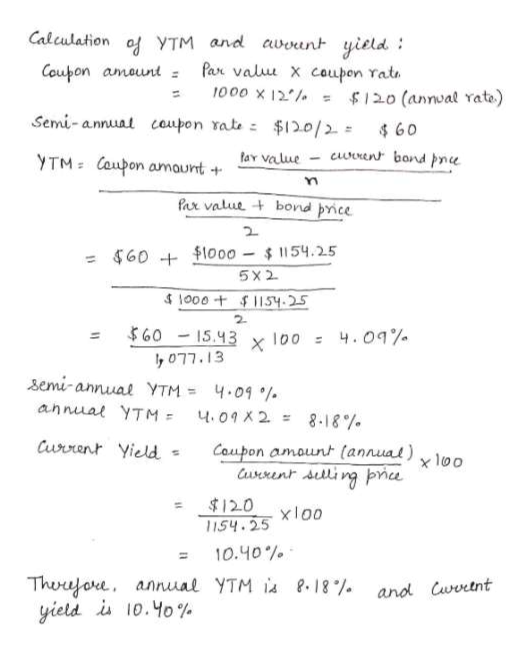 Calculation of YTM and current yield :
Coupon amount = Par value X coupon rate
= 1000 X 12% = $120 (annual rate)
Semi-annual coupon rate = $120/2 = $60
YTM = Coupon amount + Par value - current bond price
n
Par value + bond price
2
= $60 + $1000 - $1154.25
5X2
$1000 + $1154.25
2
= $60 - 15.43 X 100 = 4.09%
1,077.13
Semi-annual YTM = 4.09 %.
annual YTM = 4.09 X 2 = 8.18%
Current Yield = Coupon amount (annual) x100
Current selling price
= $120 x100
1154.25
= 10.40%
Therefore, annual YTM is 8.18% and Current
yield is 10.40%